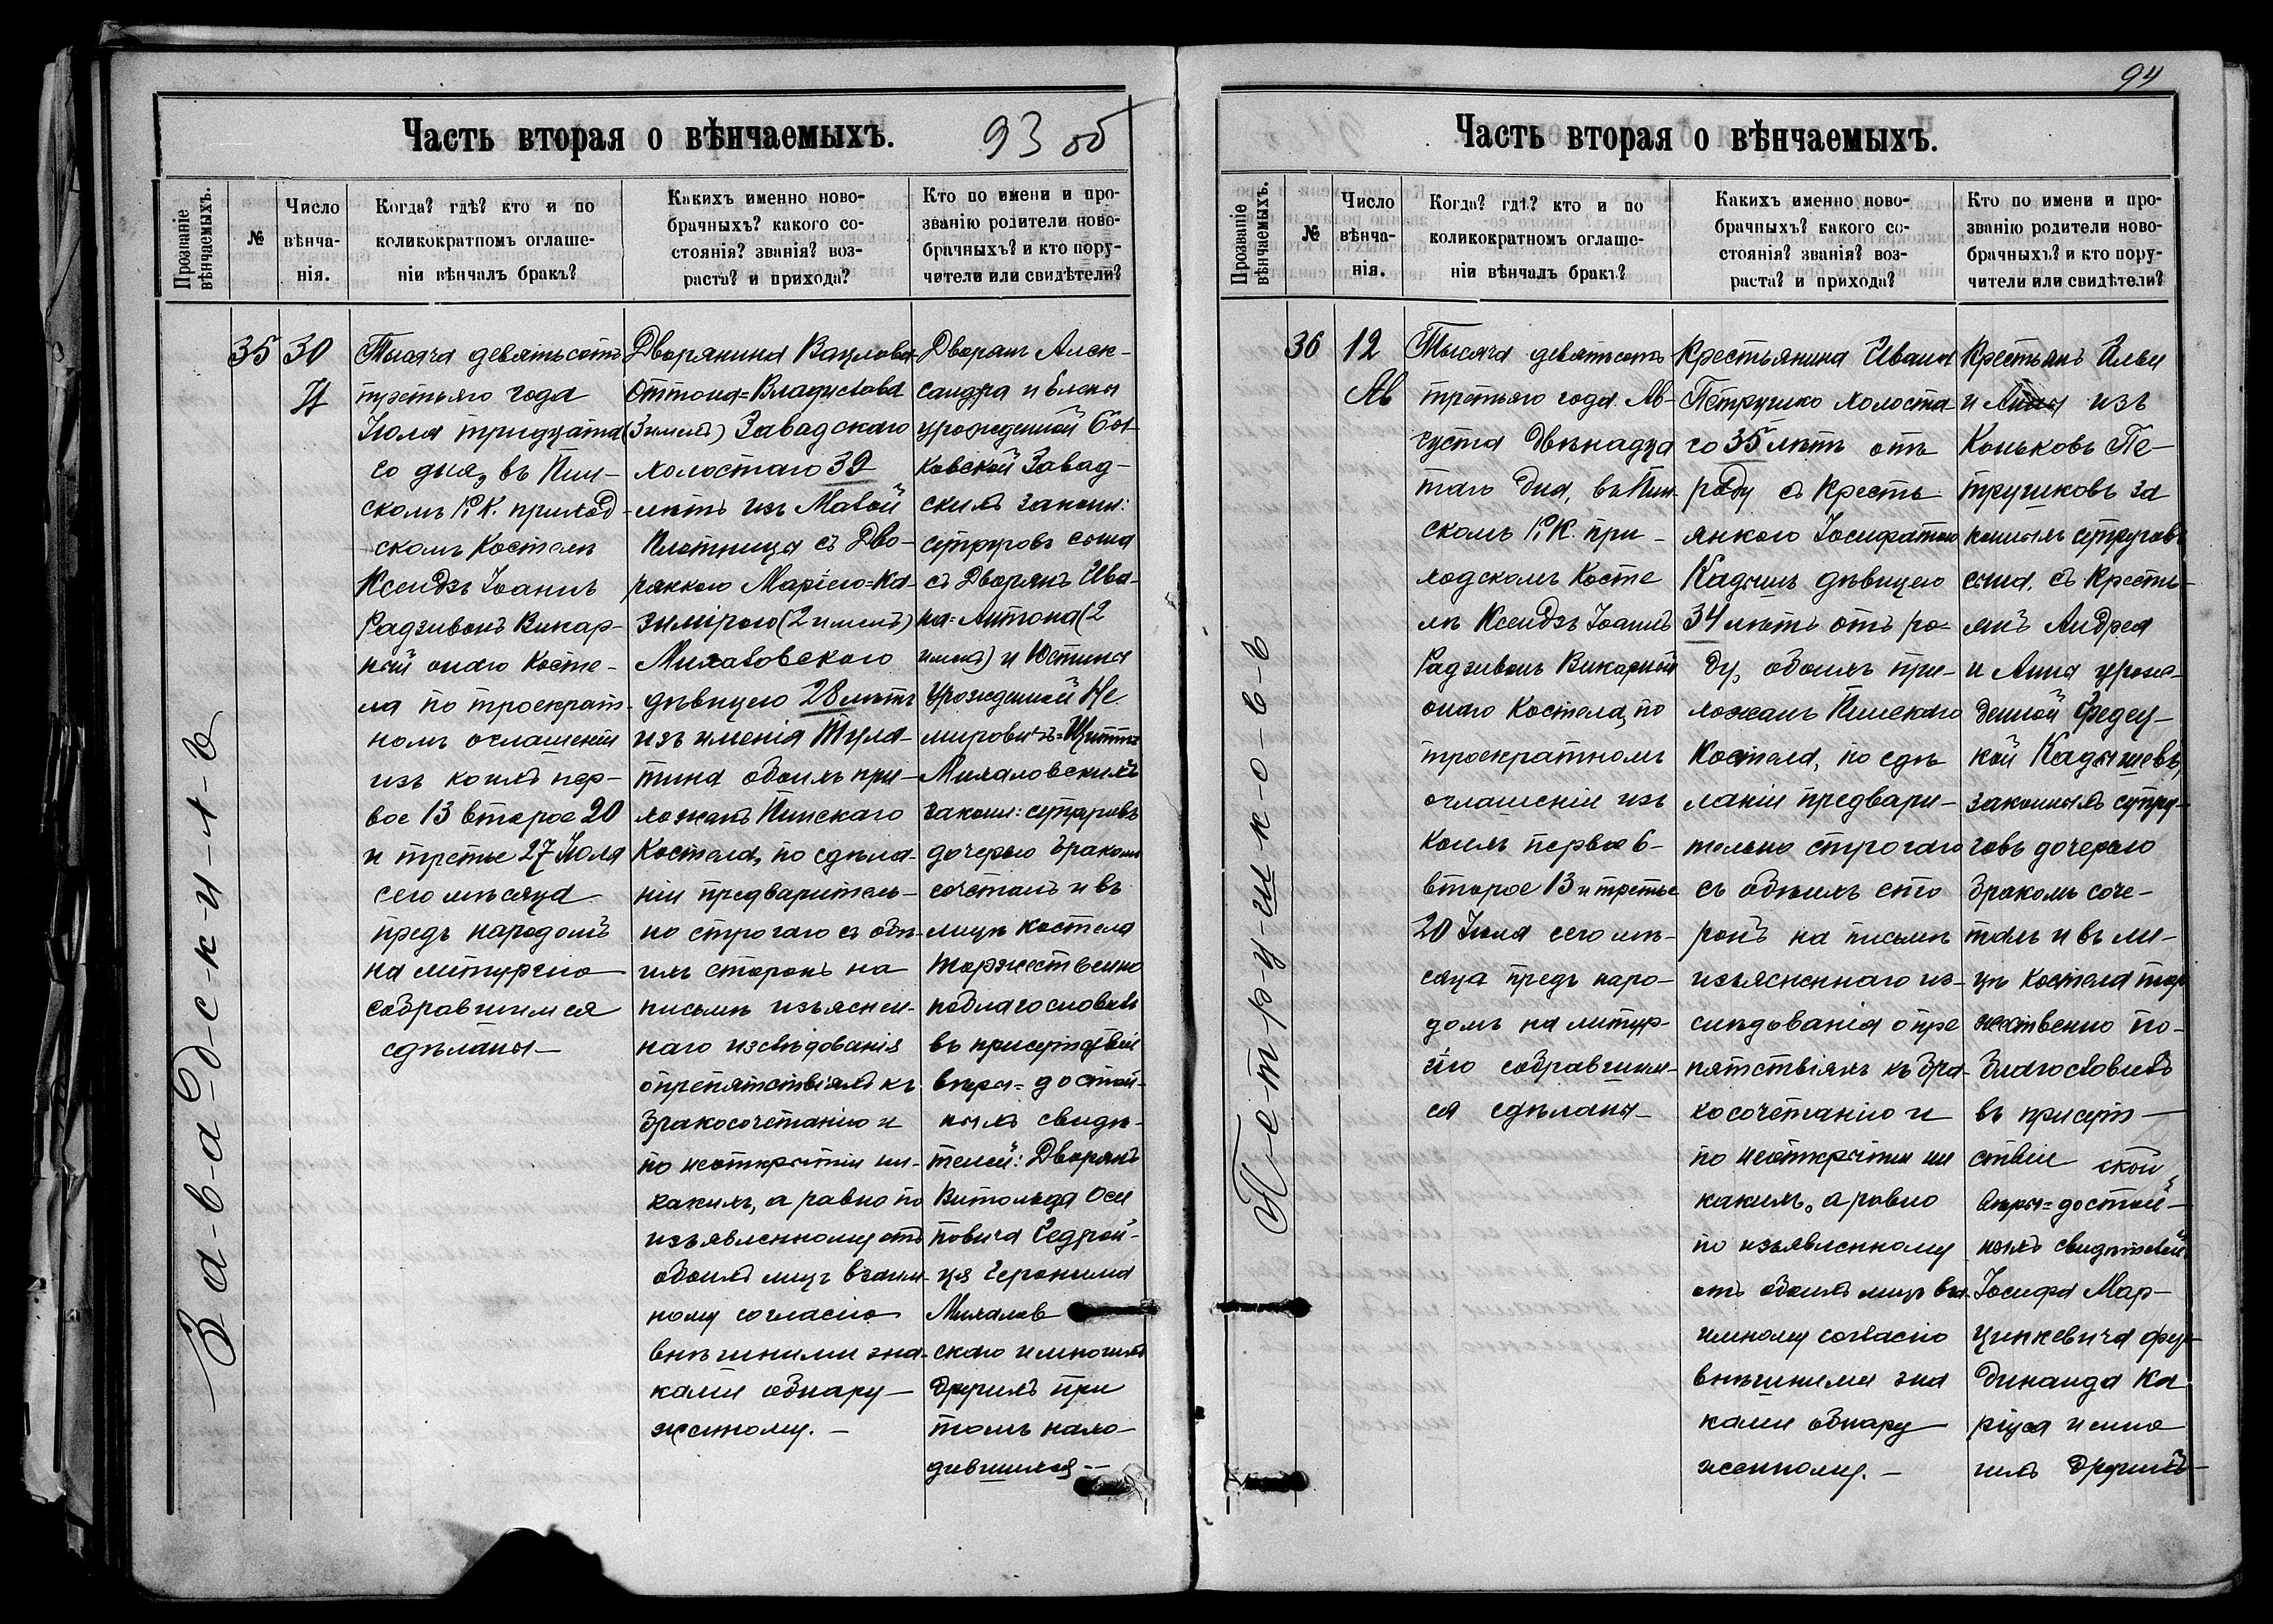 93 об
Часть вторая о вѣнчаемыхъ.
Прозваніе вѣнчаемыхъ.
№
Число вѣнча-
нія.
Когда? гдѣ? кто и по
коликократномъ оглаше-
ніи вѣнчалъ бракъ?
Какихъ именно ново-
брачныхъ? какого со-
стоянія? званія? воз-
раста? и прихода?
Кто по имени и про-
званію родители ново-
брачныхъ? и кто пору-
чители или свидѣтели?
За-ва-д-с-к-и-х-ъ
35
30
И
Тысяча девятьсотъ
третьяго года
Іюля тридцата
го дня, въ Пин-
скомъ Р. К. приход-
скомъ Костелѣ
Ксендзъ Іоаннъ
Радзивонъ Викар-
ный онаго Косте-
ла по троекрат-
номъ оглашеніи
изъ коихъ пер-
вое 13 второе 20
и третье 27 Іюля
сего мѣсяца
предъ народомъ
на литургію
собравшимся
сдѣланы —
Дворянина Вацлова
Оттона=Владислава
(3 именъ) Завадскаго
холостаго 32
лѣтъ изъ Малой
Плотницы съ Дво-
рянкою Маріею=Ка-
зимірою (2 именъ)
Михаловского
дѣвицею 28 лѣтъ
изъ именія Тула-
тина обоихъ при-
хожанъ Пинскаго
Костела, по сдѣла-
ніи предваритель-
но строгаго съ обѣ-
ихъ сторонъ на
письмѣ изъяснен-
наго изслѣдованія
о препятствіяхъ къ
бракосочетанію и
по неоткрытіи ни-
какихъ, а равно по
изъявленному отъ
обоихъ лицъ взаим-
ному согласію
внѣшними зна-
ками обнару-
женному. —
Дворянъ Алек-
сандра и Елены
урожденной
ковской Завад-
скихъ законн:
супруговъ сына
съ Дворянъ Ива-
на=Антона (2
именъ) и Юстины
урожденной Не
мировичъ=Щитты
Михаловскихъ
законн: супруговъ
дочерью бракомъ
сочеталъ и въ
лицѣ костела
торжественно
поблагословилъ
въ присутствіи
вѣры=достой-
ныхъ свидѣ-
телей: Дворянъ
Витольда Оси
повича Гедрой-
ця Геронима
Михалов
скаго и многихъ
другихъ при
томъ нахо-
дившихся —
94
Часть вторая о вѣнчаемыхъ.
Прозваніе вѣнчаемыхъ.
№
Число вѣнча-
нія.
Когда? гдѣ? кто и по
коликократномъ оглаше-
ніи вѣнчалъ бракъ?
Какихъ именно ново-
брачныхъ? какого со-
стоянія? званія? воз-
раста? и прихода?
Кто по имени и про-
званію родители ново-
брачныхъ? и кто пору-
чители или свидѣтели?
Пе-т-р-у-ш-к-о-в-ъ
36
12
Ав
Тысяча девятьсотъ
третьяго года Ав-
густа двѣнадца
таго дня, въ Пин-
скомъ Р. К. при-
ходскомъ Косте
лѣ Ксендзъ Іоаннъ
Радзивонъ Викарный
онаго Костела, по
троекратномъ
оглашеніи изъ
коихъ первое 6-
второе 13 и третье
20 Іюля сего мѣ-
сяца предъ наро-
домъ на литур-
гію собравшим-
ся сдѣланы —
Крестьянина Ивана
Петрушко холоста-
го 35 лѣтъ отъ
роду съ Кресть
янкою Іосифатою
Кадышъ дѣвицею
34 лѣтъ отъ ро-
ду, обоихъ при-
хожанъ Пинскаго
Костела, по сдѣ
ланіи предвари-
тельно строгаго
съ обѣихъ сто
ронъ на письмѣ
изъясненнаго из-
слѣдованія о пре
пятствіяхъ къ бра-
косочетанію и
по неоткрытіи ни
какихъ, а равно
по изъявленному
отъ обоихъ лицъ вза-
имному согласію
внѣшними зна
ками обнару-
женному. —
Крестьянъ Ильи
и Анны изъ
Коньковъ Пе-
трушковъ за
конныхъ супруговъ
сына, съ Крестья-
янъ Андрея
и Анны урож-
денной
Кадышевъ,
законныхъ супру-
говъ дочерью
бракомъ соче-
талъ и въ ли-
цѣ Костела тор
жественно по-
благословилъ
въ присут-
ствіи
вѣры=достой-
ныхъ свидѣтелей
Іосифа Мар-
цинкевича Фер-
динанда Ка
и мно
гихъ другихъ